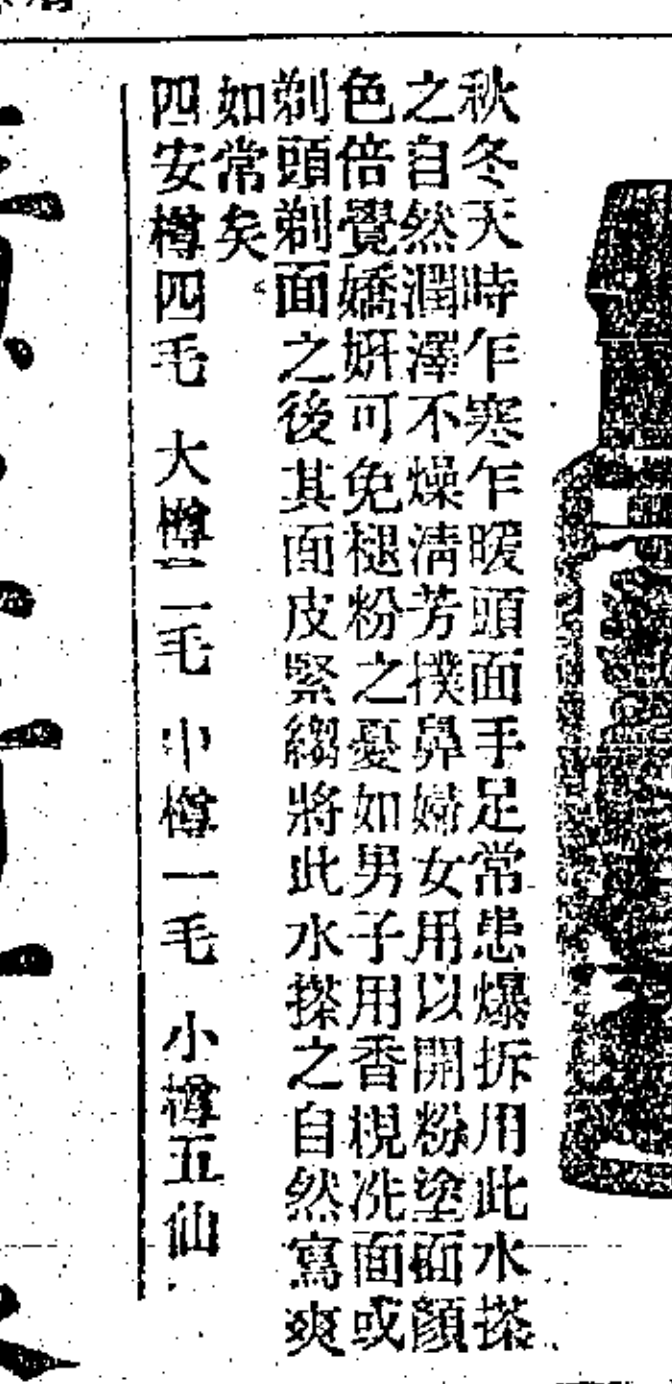 秋冬天時乍寒乍暖頭面手足常患爆拆用此水搽
之自然潤澤不燥清芳撲鼻婦女用以開粉塗面顔
色倍覺嬌妍可免褪粉之憂如男子用香梘冼面或
剃頭剃面之後其面皮緊縐將此水搽之自然寫爽
如常矣。
四安樽四毛 大樽二毛 中樽一毛 小樽五仙